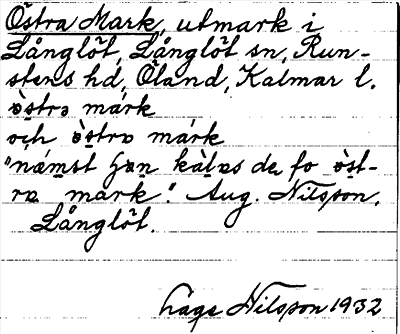 Östra Mark, utmark i
Långlöt, Långlöt sn, Run-
stens hd, Öland, Kalmar l.
ö̀strə márk
och ö̀stra márk
"námst han kàlas de fo öst-
ra mark". Aug. Nilsson,
Långlöt.
Låge Nilsson 1932